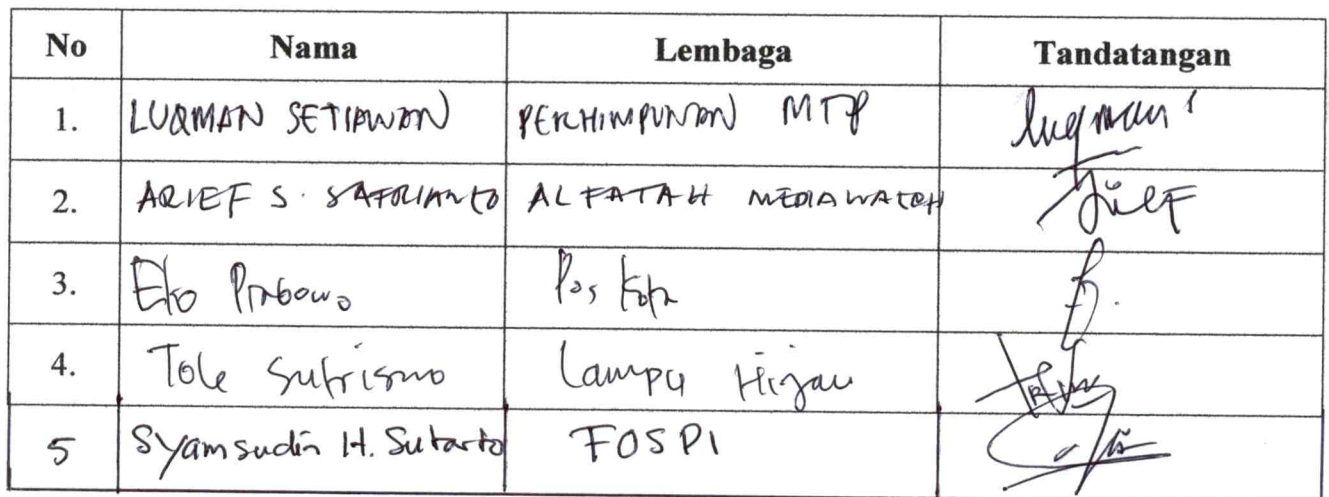 No Nama Lembaga Tandatangan
1. LUQMAN SETIAWAN PERHIMPUNAN MTP luqman
2. ARIEF S. SAFRIANTO ALFATAH MEDIAWATCH Arief
3. Eko Prabowo Pos Kota
4. Tole Sutrisno Lampu Hijau
5 Syamsudin H. Sutarto FOSPI